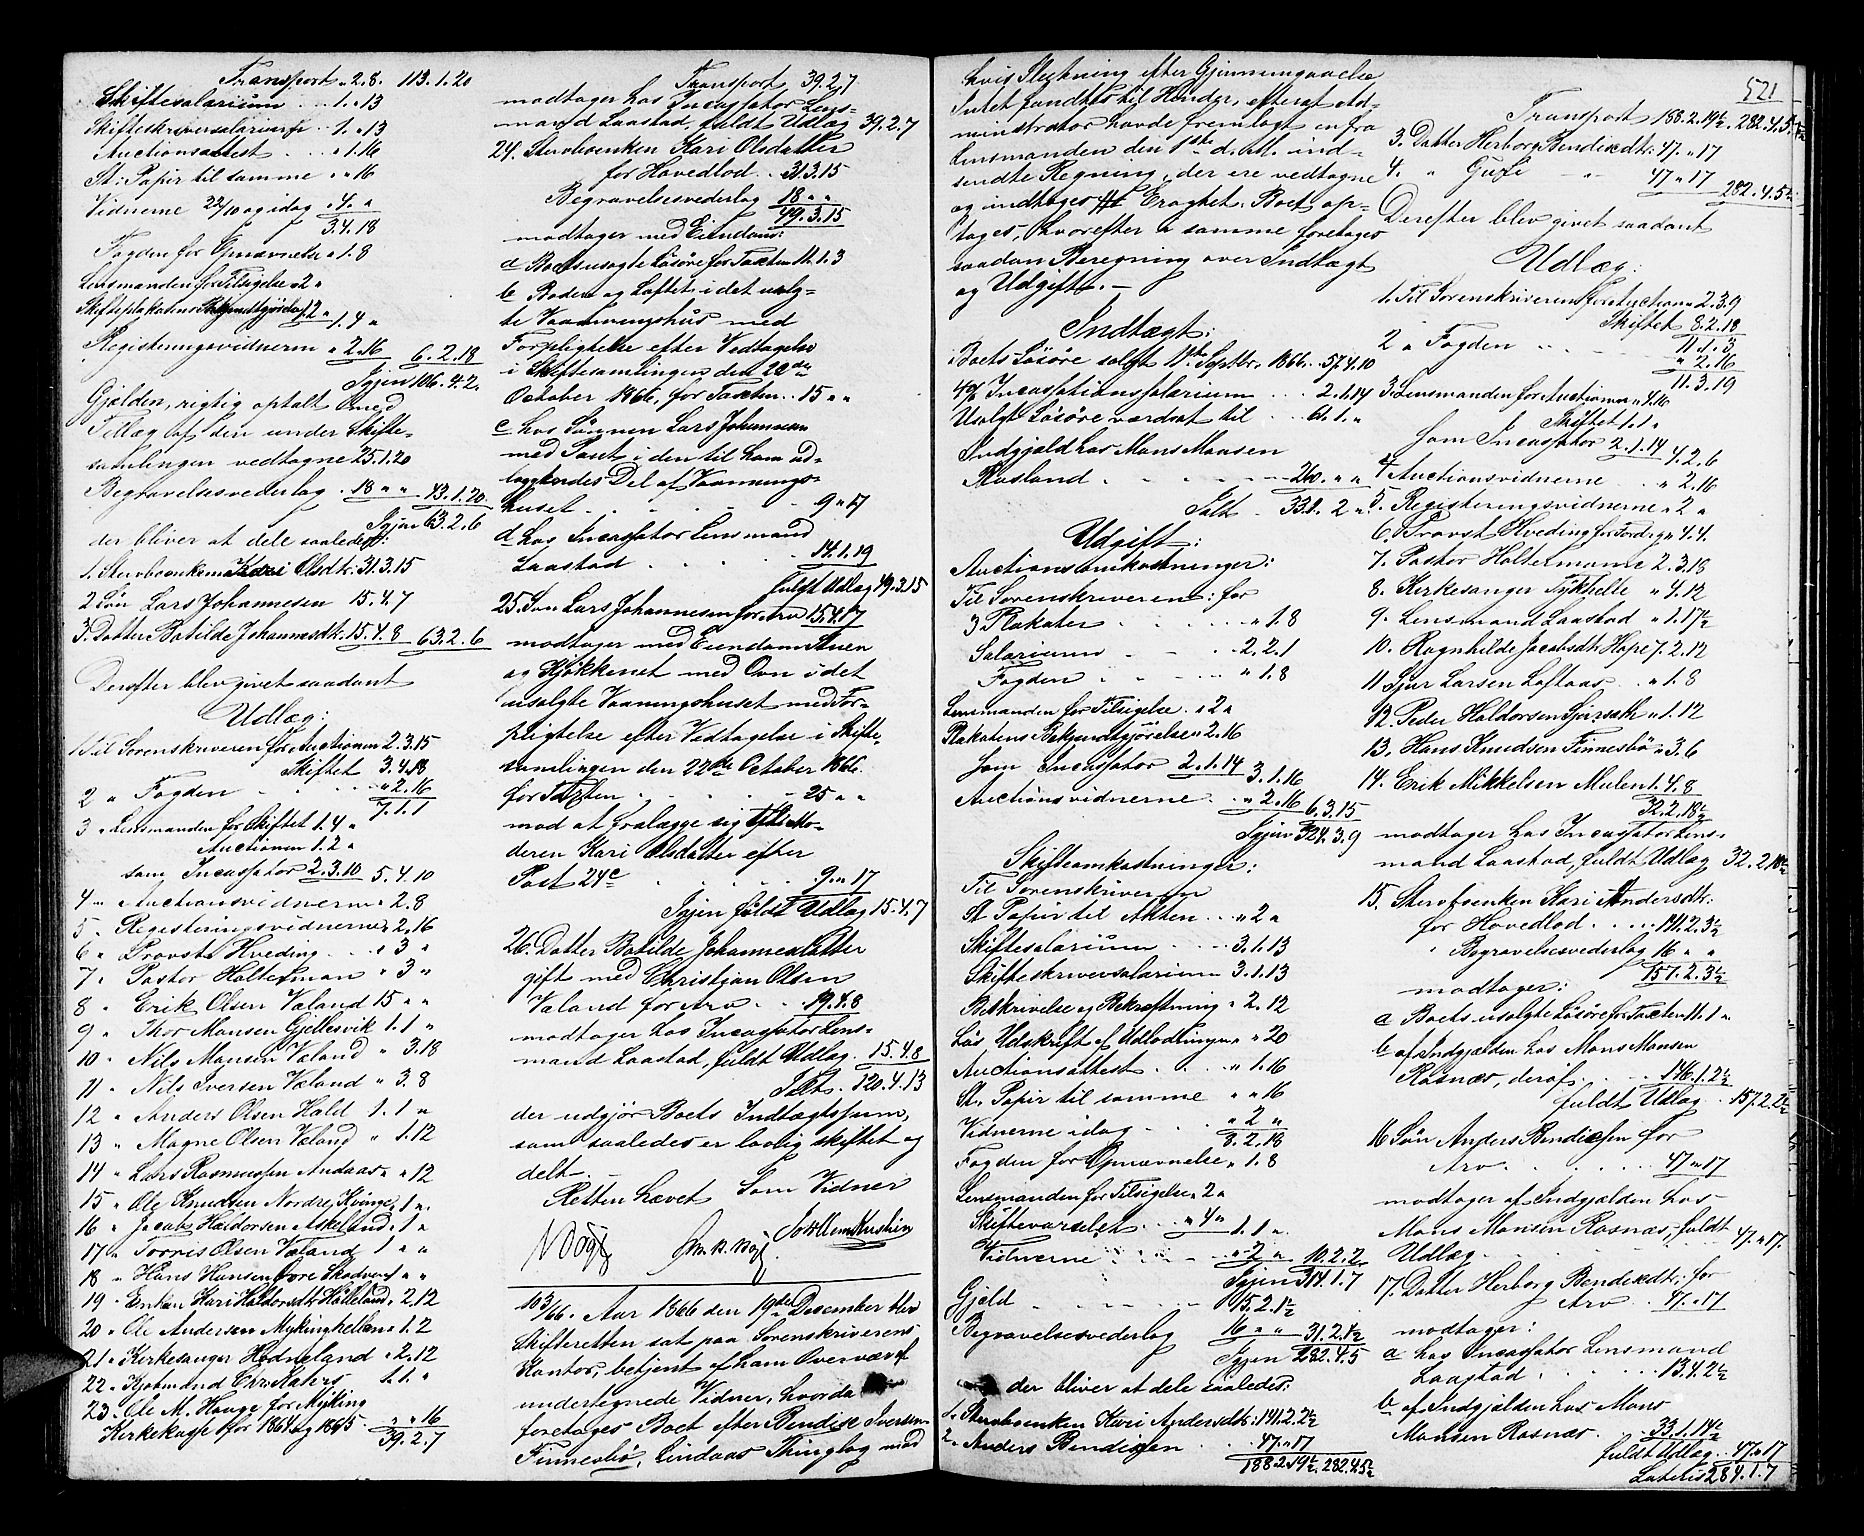 Transport " 2.8. 113.1.20
Skiftesalarium . . . 1. " 13
Skifteskriversalarium . . 1. " 13
Auctionsattest . . . " 1.16
St: Papir til samme " " 16
Vidnerne 22/10 og idag " 4. "
3.4.18
Fogden for Opnævnelse " 1.8
Lensmanden for Tilsigelse " 2 "
1.4 "
Registeringsvidnerne " 2.16 6.2.18
Igjen 106.4.2.
Gjælden, rigtig optalt med
Tillæg af den under Skifte-
samlingen vedtagne 25.1.20
Begravelsesvederlag . 18 " " 43.1.20.
Igjen 63.2.6
der bliver at dele saaledes:
1. Stervboenken Kari Olsdtr: 31.3.15
2 Søn Lars Johannesen 15.4.7
3. Datter Batilde Johannesdtr: 15.4.8 63.2.6
Derefter blev givet saadant
Udlæg:
1. Til Sorenskriveren for Auctionen 2.3.15
Skiftet 3.4.18
2 " Fogden . . . " 2.16
7.1.1
3 " Lensmanden for Skiftet 1.4 "
Auctionen 1.2 "
som Incassator 2.3.10 5.4.10
4 " Auctionsvidnerne " 2.8
5 " Registeringsvidnerne " 2.16
6 " Provst Hveding . . " 3 "
7 " Pastor Holterman " 3 "
8 " Erik Olsen Væland 15 " "
9 " Thor Monsen Gjellesvik 1.1 "
10 " Nils Monsen Væland " 3.18
11 " Nils Iversen Væland " 3.8
12 " Anders Olsen Hald 1.1 "
13 " Magne Olsen Væland " 1.12
14 " Lars Rasmussen Andaas " " 12
15 " Ole Knudsen Nordre Kvinge 1 " "
16 " Jacob Haldorsen Askeland " 1 "
17 " Torris Olsen Væland 1 " "
18 " Hans Hansen Skodven 1 " "
19 " Enken Kari Haldorsdtr Hølleland " 2.12
20 " Ole Andersen Mykinghellen " 1.2
21 " Kirkesanger Hodneland " 2.12
22 " Kjøbmand Chr. 1.1. "
23 " Ole M. Hauge for Myking
Kirkekasse for 1864 og 1865 " " 16
39.2.7
Transport 39.2.7
modtager hos Incassator Lens-
mand Laastad, fuldt Udlæg 39.2.7
24. Stervboenken Kari Olsdatter
for Hovedlod . . 31.3.15
Begravelsesvederlag 18 " "
49.3.15
modtager med Eiendom:
a Boets usolgte Løsøre for Taxten 11.1.3
b Boden og Loftet i det usolg-
te Vaaningshus med
Forpligtelse efter Vedtagelse
i Skiftesamlingen den 22de
October 1866, for Taxten . . 15 " "
c hos Sønnen Lars Johannesen
med Post i den til ham ud-
laggendes Del af Vaanings-
huset . . . . 9 " 17
d hos Incassator Lensmand
Laastad . . . . 14.1.19
fuldt Udlæg 49.3.15
25. Søn Lars Johannesen for Arv 15.4.7
modtager med Eiendom Stuen
og Kjøkkenet med Ovn i det
usolgte Vaaningshuset med For-
pligtelse efter Vedtagelse i Skifte-
samlingen den 22de October 1866
for Taxten . . . . 25 " "
mod at fralægge sig til Mo-
deren Kari Olsdatter efter
Post 24c . . . . 9 " 17
Igjen fuldt Udlæg 15.4.7
26. Datter Batilde Johannesdatter
gift med Christjan Olsen
Væland for Arv . . 15.4.8
modtager hos Incassator Lens-
mand Laastad, fuldt Udlæg. 15.4.8
Salt. 120.4.13
der udgjør Boets Indtægtssum,
som saaledes er lovlig skiftet og
delt.
Retten hævet Som Vidner
103/66. Aar 1866 den 19de December blev
Skifteretten sat paa Sorenskriverens
Kontor, betjent af ham Overvær af
undertegnede Vidner, hvorda
foretoges Boet efter Bendix Iversen
Finnesbø, Lindaas Thinglag med
521
hvis Slutning efter Gjennemgaaelse
Intet fandtes til Hinder, efterat Ad-
ministrator havde fremlagt en fra
Lensmanden den 1ste d. M. ind-
sendte Regning, der ere vedtagne
og indtages Eragtet. Boet op-
tages, hvorefter a samme foretages
saadan Beregning over Indtægt
og Udgift. -
Indtægt:
Boets Løsøre solgt 11te Septbr. 1866. 57.4.10
4% Incassationssalarium . . . 2.1.14
Usolgt Løsøre værdsat til . . . 11.1. "
Indgjæld hos Mons Monsen
Rosland . . . . 260. " "
Salt . 331. 2 "
Udgift:
Auctionsomkostninger:
Til Sorenskriveren: for
3 Plakater . . . . " 1.8
Salarium . . . 2.2.1
Fogden . . . . " 1.8
Lensmanden for Tilsigelse " 2 "
Plakatens Bekjendtgjørelse " 2.16
som Incassator 2.1.14 3.1.16
Auctionsvidnerne . . " 2.16 6.3.15
Igjen 324.3.9
Skifteomkostninger:
Til Sorenskriveren
St Papir til Akten . . " 2 "
Skiftesalarium . . . 3.1.13
Skifteskriversalarium 3.1.13
Beskrivelse og Bekræftning " 2.12
Løs Udskrift af Udlodningen " " 20
Auctionsattest . . . " 1.16
St. Papir til samme " " 16
Vidnerne idag . . " 2 "
8.2.18
Fogden for Opnævnelse " 1.8
Lensmanden for Tilsigelse " 2 "
Skiftevarselet . . " 4 " 1.1 "
Vidnerne . . . . " 2 " 10.2.2
Igjen 314.1.7
Gjæld . . . . . 15.2.1½
Begravelsesvederlag 16 " " 31.2.1½
Igjen 282.4.5
der bliver at dele saaledes:
1. Stervboenken Kari Andersdtr: 141.2.2½
2. Anders Bendixen . . 47. " 17
188.2.19½ 282.4.5½
Transport 188.2.19½. 282.4.5½
3. Datter Herborg Bendixdtr: 47. " 17
4. " " 47 " 17 282.4.5½
Derefter blev givet saadant
Udlæg:
1. Til Sorenskriveren for Auctionen 2.3.9
Skiftet 8.2.18
11.1.3
2 " Fogden " . . . " 2.16
11.3.19
3. Lensmanden for Auctionen " 4.16
Skiftet 1.1 "
som Incassator 2.1.14 4.2.6
4 Auctionsvidnerne . . " 2.16
5. Registeringsvidnerne " 2 "
6. Provst Hveding for Fordrg " 4.4.
7. Pastor Holtermann 2.3.18
8. Kirkesanger " 4.12
9. Lensmand Laastad " 1.17½
10. Ragnhilde Jacobsdtr Hope 7.2.12
11 Sjur Larsen Loftaas . . " 1.8
12. Peder Haldorsen " 1.12
13. Hans Knudsen Finnesbø " 3.6
14. Erik Mikkelsen Mulen 1.4.8
32.2.18½
modtager hos Incassator Lens-
mand Laastad, fuldt Udlæg 32.2.18½
15. Stervboenken Kari Andersdtr:
for Hovedlod . . . . 141.2.3½
" Begravelsesvederlag 16 " "
157.2.3½
modtager:
a Boets usolgte Løsøre for Taxten 11.1 "
b af Indgjælden hos Mons Monsen
Rosnæs, deraf . . . 146.1.2½
fuldt Udlæg . 157.2.2½
16 Søn Anders Bendixsen for
Arv . . . . . 47 " 17
modtager af Indgjælden hos
Mons Monsen Rosnæs, fuldt
Udlæg . . . . . 47. " 17.
17. Datter Herborg Bendixdtr: for
Arv . . 47. " 17
modtager:
a hos Incassator Lensmand
Laastad . . . . 13.4.2½
b af Indgjælden hos Mons
Monsen Rosnæs . . 33.1.14½
fuldt Udlæg . . 47. " 17
Lateris 284.1.7